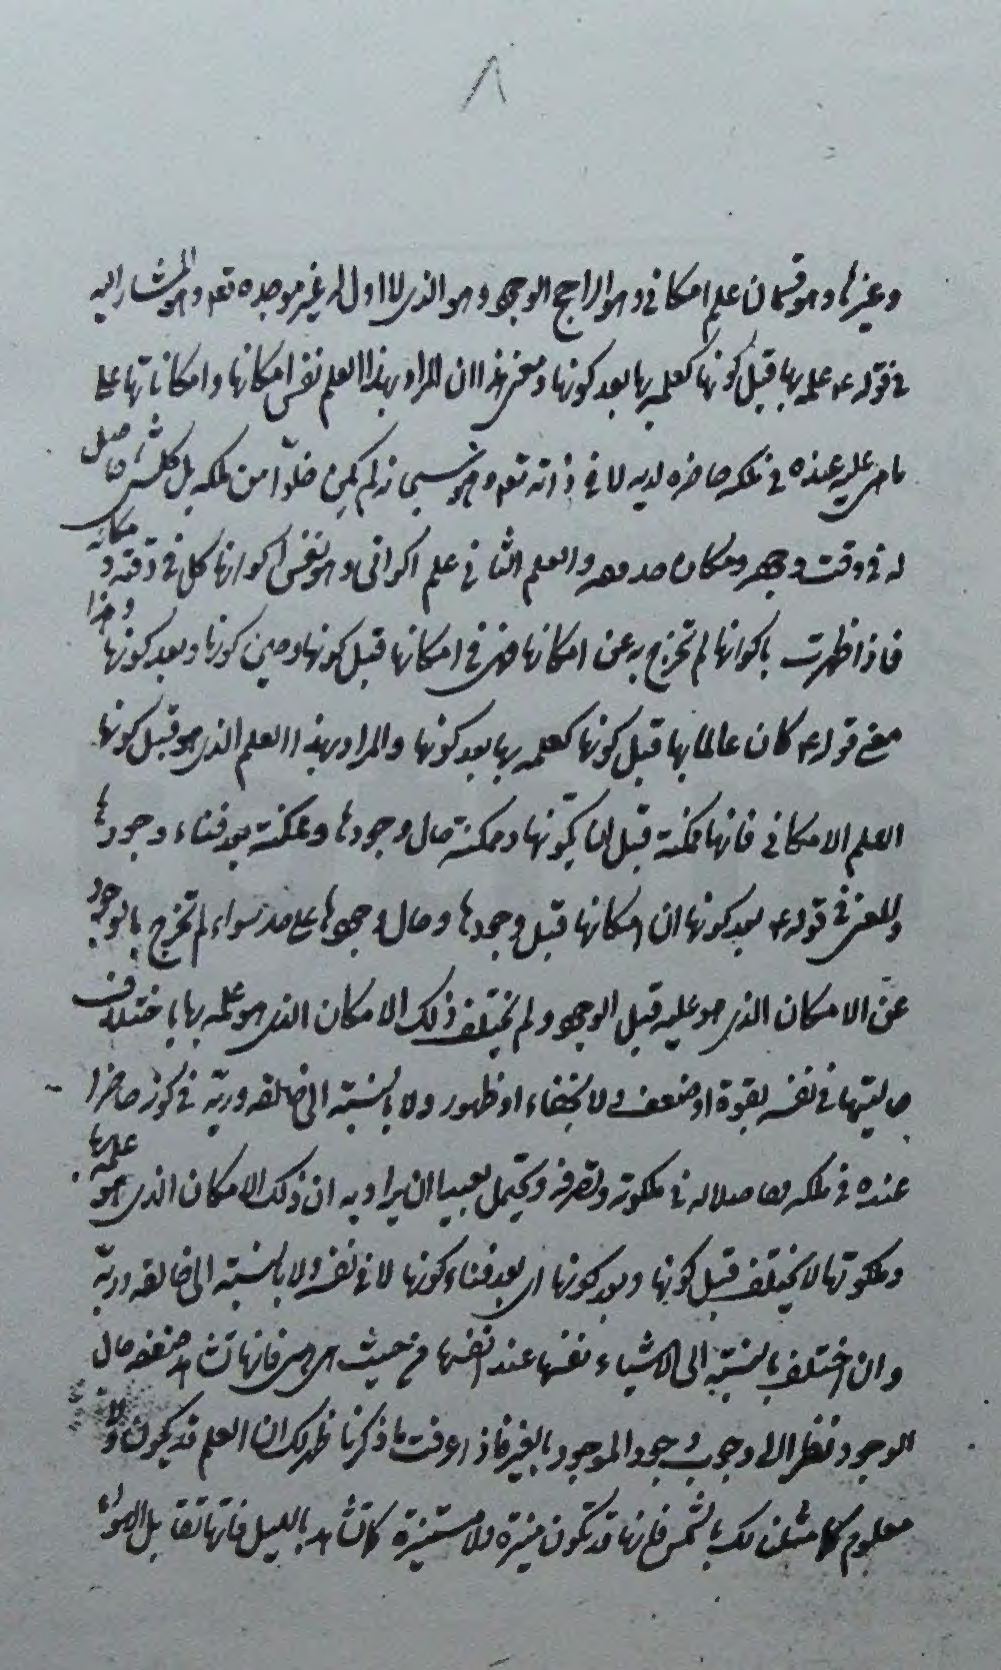 ٨
وغيرها وهو قسمان علم امكاني وهو الراجح الوجود وهو الذي لا اول له غير موجده تع وهو المشار اليه
في قوله ع علمه بها قبل كونها كعلمه بها بعد كونها ومعنى هذا ان المراد بهذا العلم نفس امكانها وامكاناتها على
ما هي عليه عنده في ملكه حاضرة لديه لا في ذاته تع وهو سبحانه لم يكن خلوا من ملكه بل كل شيء حاصل
له في وقت وجوده ومكان حدوده والعلم الثاني علم اكواني وهو نفس اكوانها كل في وقته ومكانه
فاذا ظهرت باكوانها لم تخرج به عن امكانها فهي في امكانها قبل كونها وحين كونها وبعد كونها وهذا
معنى قوله ع كان عالما بها قبل كونها كعلمه بها بعد كونها والمراد بهذا العلم الذي هو قبل كونها
العلم الامكاني فانها ممكنة قبل ان يكونها وممكنة حال وجودها وممكنة بعد فناء وجودها
والمعنى في قوله ع بعد كونها ان امكانها قبل وجودها وحال وجودها على حد سواء لم تخرج بالوجود
عن الامكان الذي هو عليه قبل الوجود ولم يختلف ذلك الامكان الذي هو علمه بها باختلاف
حاليتها في نفسه بقوة او ضعف ولا بخفاء او ظهور ولا بالنسبة الى خالقه وربه في كونه حاضرا
عنده في ملكه وحاصلا له في ملكوته وتصرفه ويحتمل بعيدا ان يراد به ان ذلك الامكان الذي هو علمه بها
وملكوتها لا يختلف قبل كونها وبعد كونها اي بعد فناء كونها لا في نفسه ولا بالنسبة الى خالقه وربه
وان اختلف بالنسبة الى الاشياء نفسها عند انفسها من حيث هي هي فانها تشاهد ضعفه حال
الوجود نظرا الى وجوب وجود الموجود بالغير فاذا عرفت ما ذكرنا ظهر لك ان العلم قد يكون ولا
معلوم كما مثلنا لك بالشمس فانها قد تكون منيرة ولا مستنيرة كما تشاهد بالليل فانها تقابل الهواء